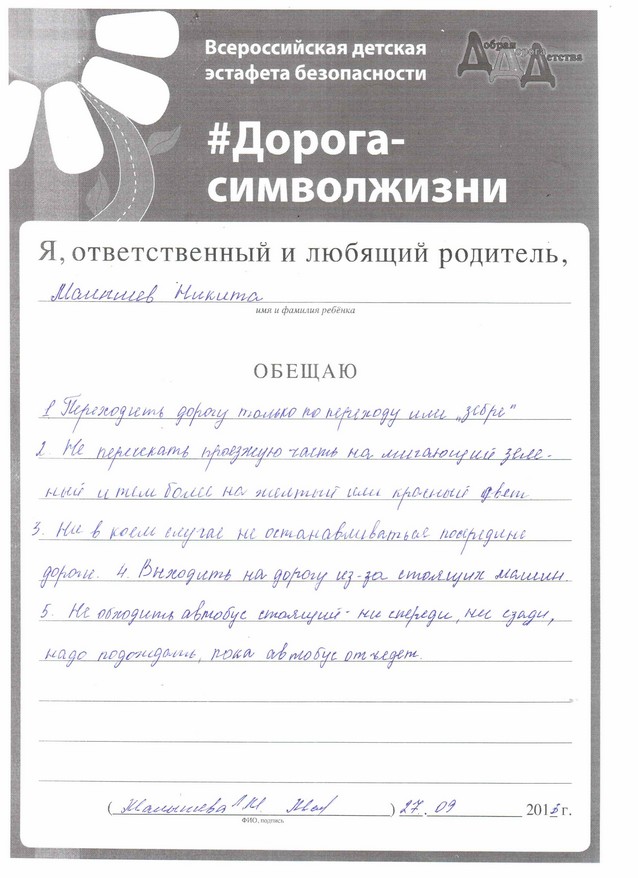 Всероссийская детская
эстафета безопасности
Добрая Дорога Детства
#Дорога-
символжизни
Я, ответственный и любящий родитель,
Малышев Никита
имя и фамилия ребёнка
ОБЕЩАЮ
1 Переходить дорогу только по переходу или „зебре"
2. Не пересекать проезжую часть на мигающий зеле-
ный и тем более на желтый или красный цвет
3. Ни в коем случае не останавливаться посредине
дороги. 4. Выходить на дорогу из-за стоящих машин.
5. Не обходить автобус стоящий - ни спереди, ни сзади,
надо подождать, пока автобус отъедет.
( Малышева ) 27 . 09 201 г.
ФИО, подпись